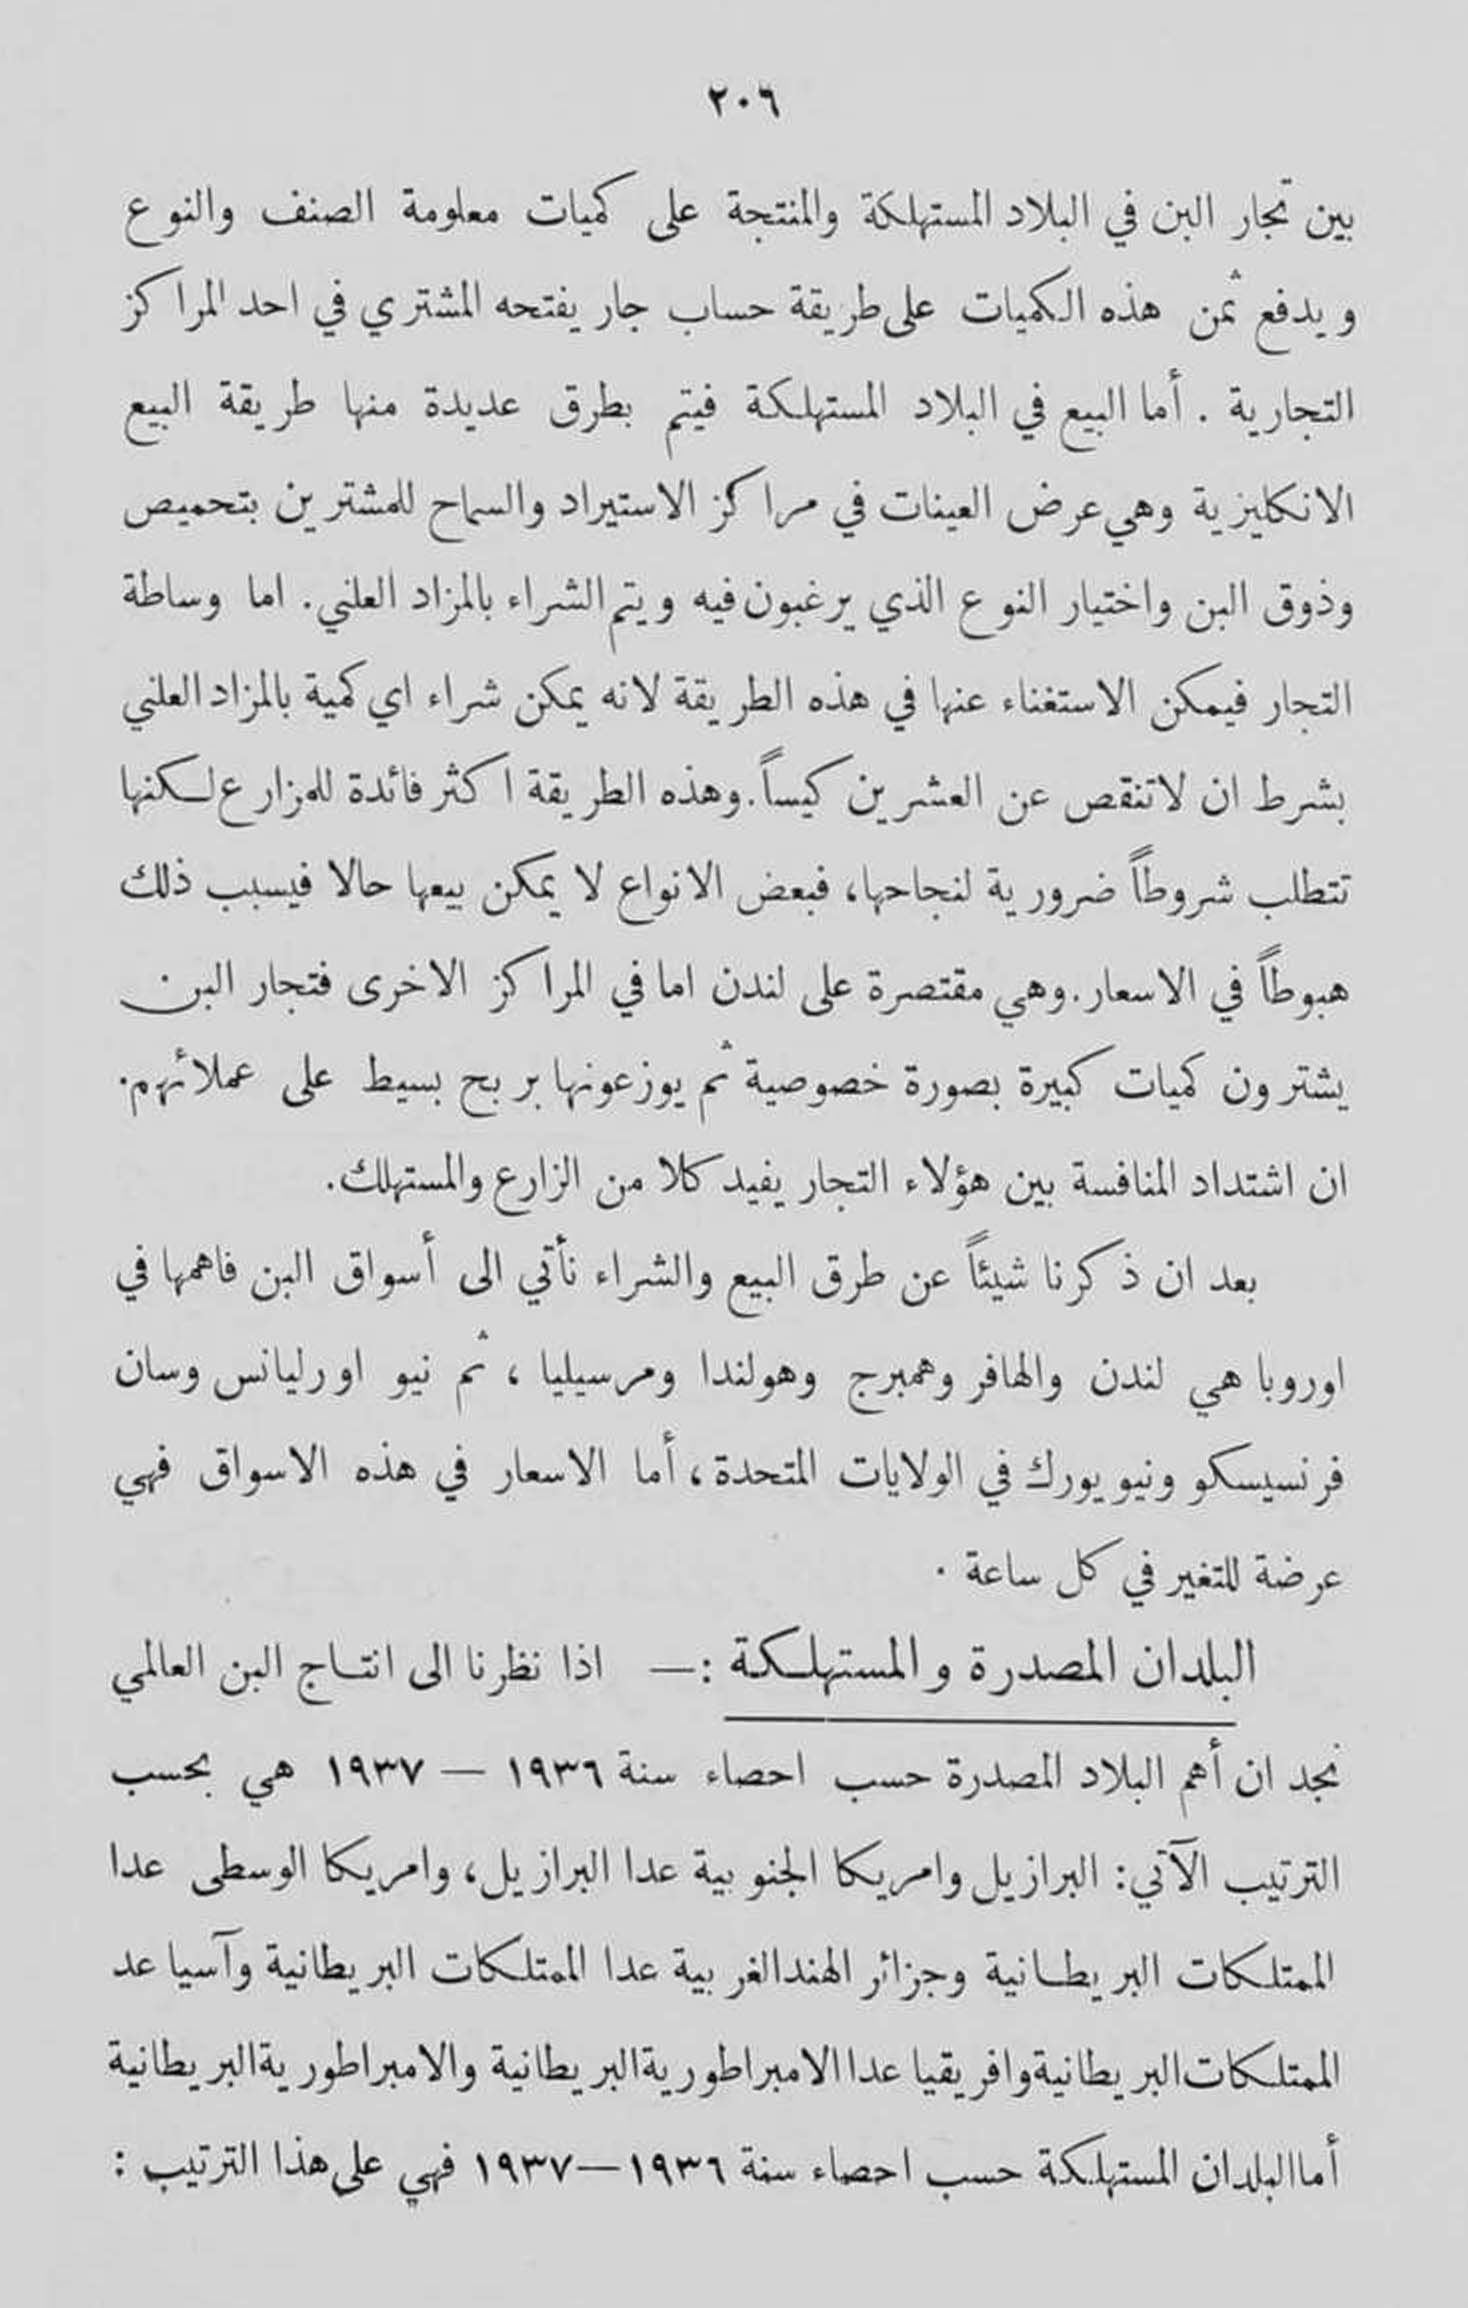 ٢٠٦
بين تجار البن في البلاد المستهلكة والمنتجة على كميات معلومة الصنف والنوع
ويدفع ثمن هذه الكميات على طريقة حساب جار يفتحه المشتري في احد المراكز
التجارية . أما البيع في البلاد المستهلكة فيتم بطرق عديدة منها طريقة البيع
الانكليزية وهي عرض العينات في مراكز الاستيراد والسماح للمشترين بتحميص
وذوق البن واختيار النوع الذي يرغبون فيه ويتم الشراء بالمزاد العلني. اما وساطة
التجار فيمكن الاستغناء عنها في هذه الطريقة لانه يمكن شراء اي كمية بالمزاد العلني
بشرط ان لاتنقص عن العشرين كيساً. وهذه الطريقة اكثر فائدة للمزارع لكنها
تتطلب شروطاً ضرورية لنجاحها، فبعض الانواع لا يمكن بيعها حالا فيسبب ذلك
هبوطاً في الاسعار. وهي مقتصرة على لندن اما في المراكز الاخرى فتجار البن
يشترون كميات كبيرة بصورة خصوصية ثم يوزعونها بربح بسيط على عملائهم.
ان اشتداد المنافسة بين هؤلاء التجار يفيد كلا من الزارع والمستهلك.
بعد ان ذكرنا شيئاً عن طرق البيع والشراء نأتي الى أسواق البن فاهمها في
اوروبا هي لندن والهافر وهمبرج وهولندا ومرسيليا ، ثم نيو اورليانس وسان
فرنسيسكو ونيويورك في الولايات المتحدة، أما الاسعار في هذه الاسواق فهي
عرضة للتغير في كل ساعة .
البلدان المصدرة والمستهلكة :— اذا نظرنا الى انتاج البن العالمي
نجد ان أهم البلاد المصدرة حسب احصاء سنة ١٩٣٦ — ١٩٣٧ هي بحسب
الترتيب الآتي: البرازيل وامريكا الجنوبية عدا البرازيل، وامريكا الوسطى عدا
الممتلكات البريطانية وجزائر الهند الغربية عدا الممتلكات البريطانية وآسيا عد
الممتلكات البريطانية وافريقيا عدا الامبراطورية البريطانية والامبراطورية البريطانية
أما البلدان المستهلكة حسب احصاء سنة ١٩٣٦—١٩٣٧ فهي على هذا الترتيب :